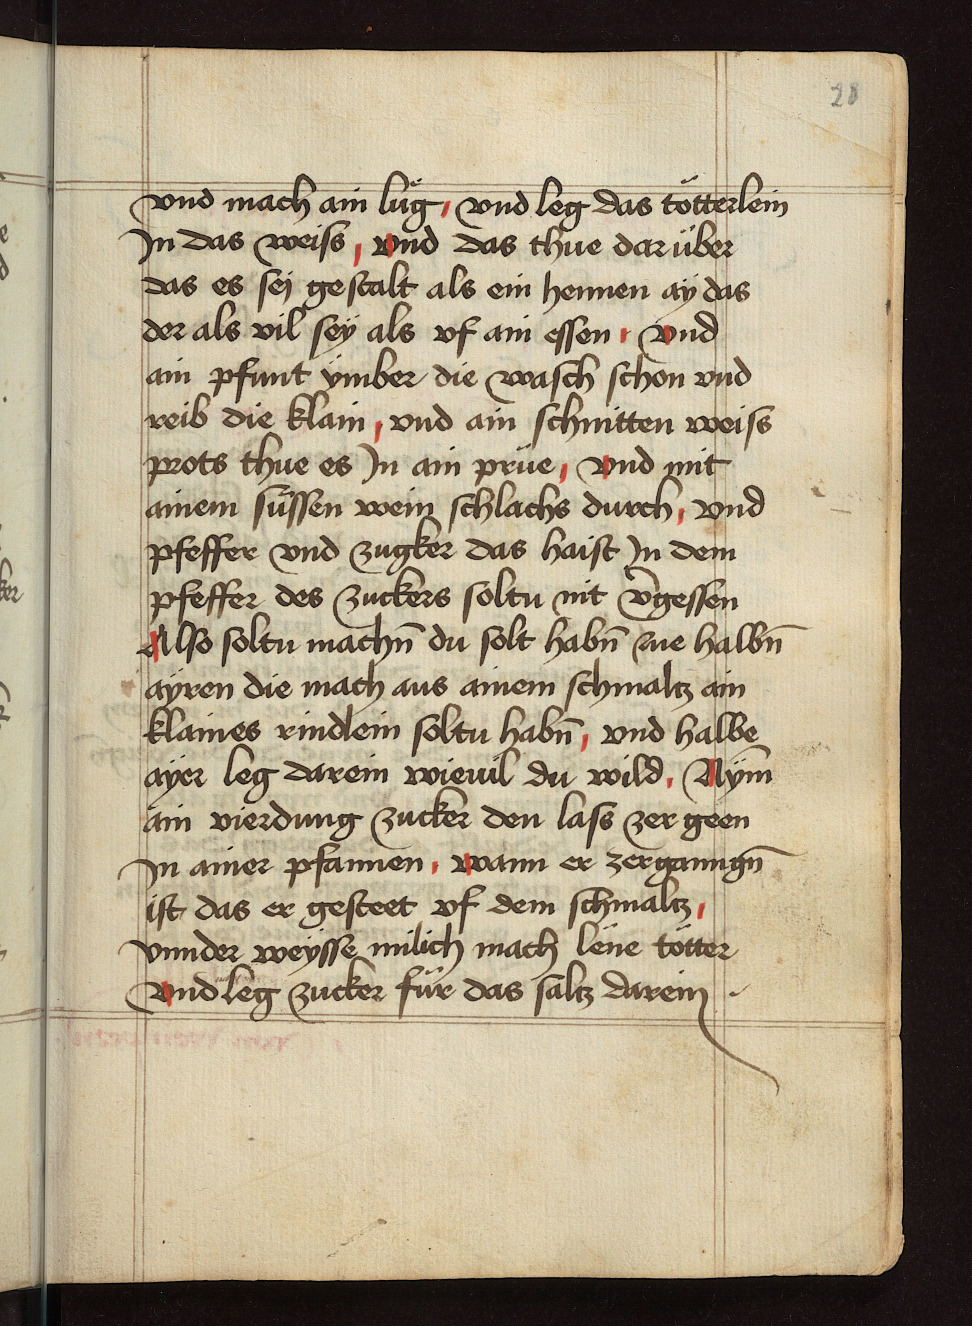 28
vnd mach ain lu̇g, vnd leg das tötterlein
In das weiss, vnd das thue darüber
das es sej gestalt als ein hennen ay das
der als vil sey als vf ain essen, vnd
ain pfunt ÿmber die wasch schon vnd
reib die klain, vnd ain schnitten weiss
prots thue es In ain prüe, vnd mit
ainem süssen wein schlachs durch, vnd
pfeffer vnd zugker das haist In dem
pfeffer des zuckers soltu nit v̄gessen
Also soltu machn̄ du solt habn̄ halbn̄
ayren die mach aus ainem schmaltz ain
klaines rindlein soltu habn̄, vnd halbe
ayer leg darein wieuil du wild, Nÿm
ain vierdung zucker den lass zergeen
In ainer pfannen, wann er zerganngn̄
ist das er gesteet vf dem schmaltz,
vnnder weysse milich mach tötter
vnd leg zucker für das saltz darein